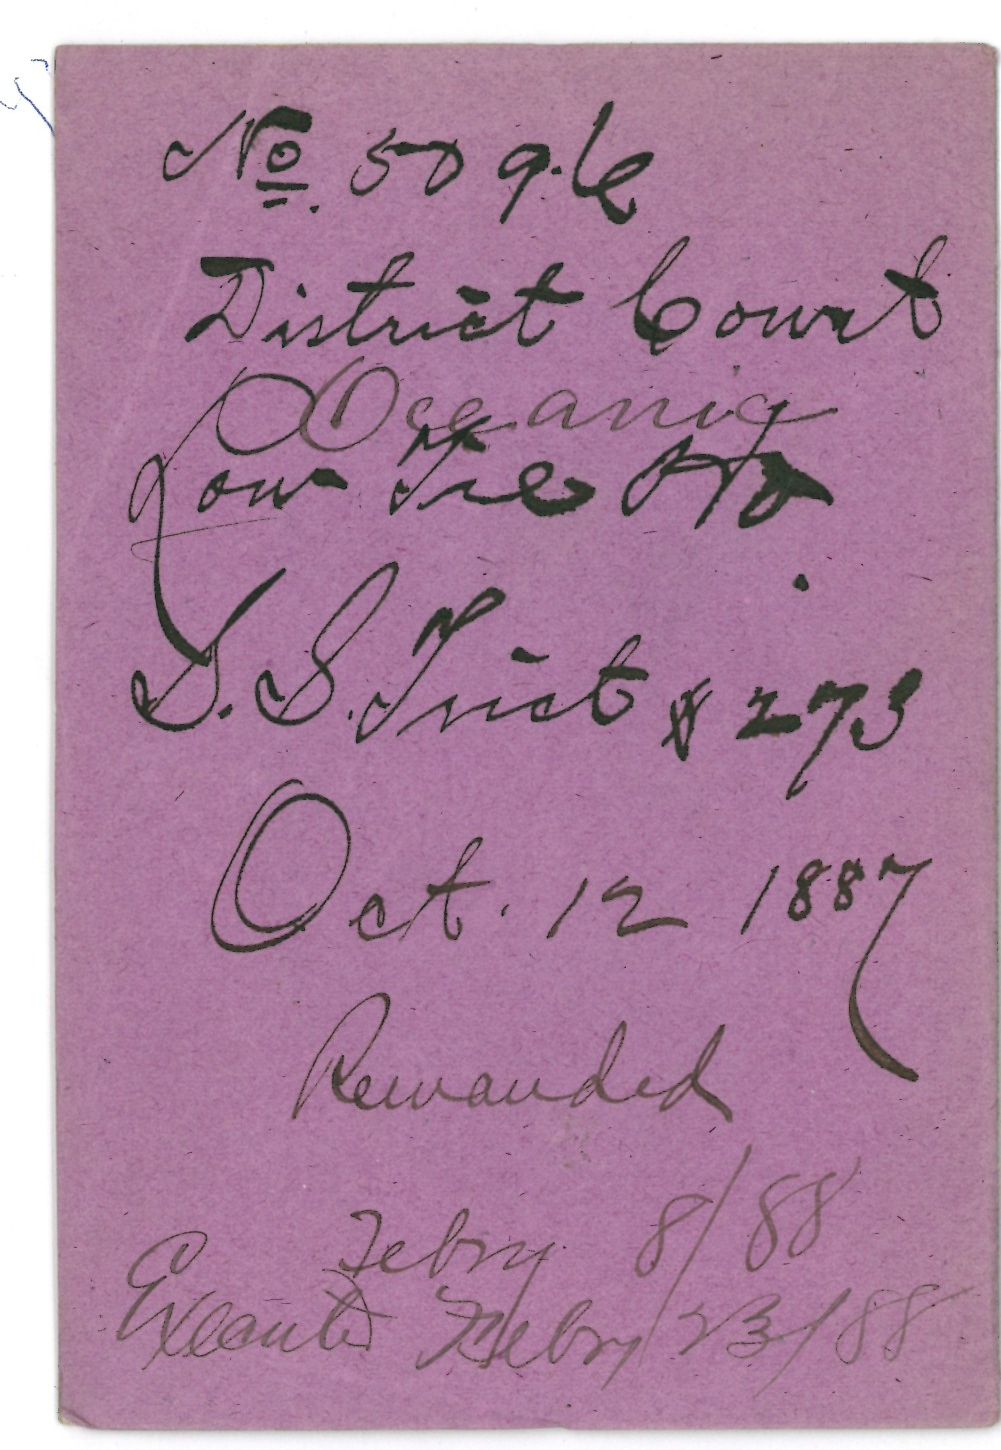 No. 5096
District Court
Oceanic
Low Tie Ho
S. S. Trict $273
Oct. 12 1887
Remanded
Febry 8/88
Executed Febry 23/88